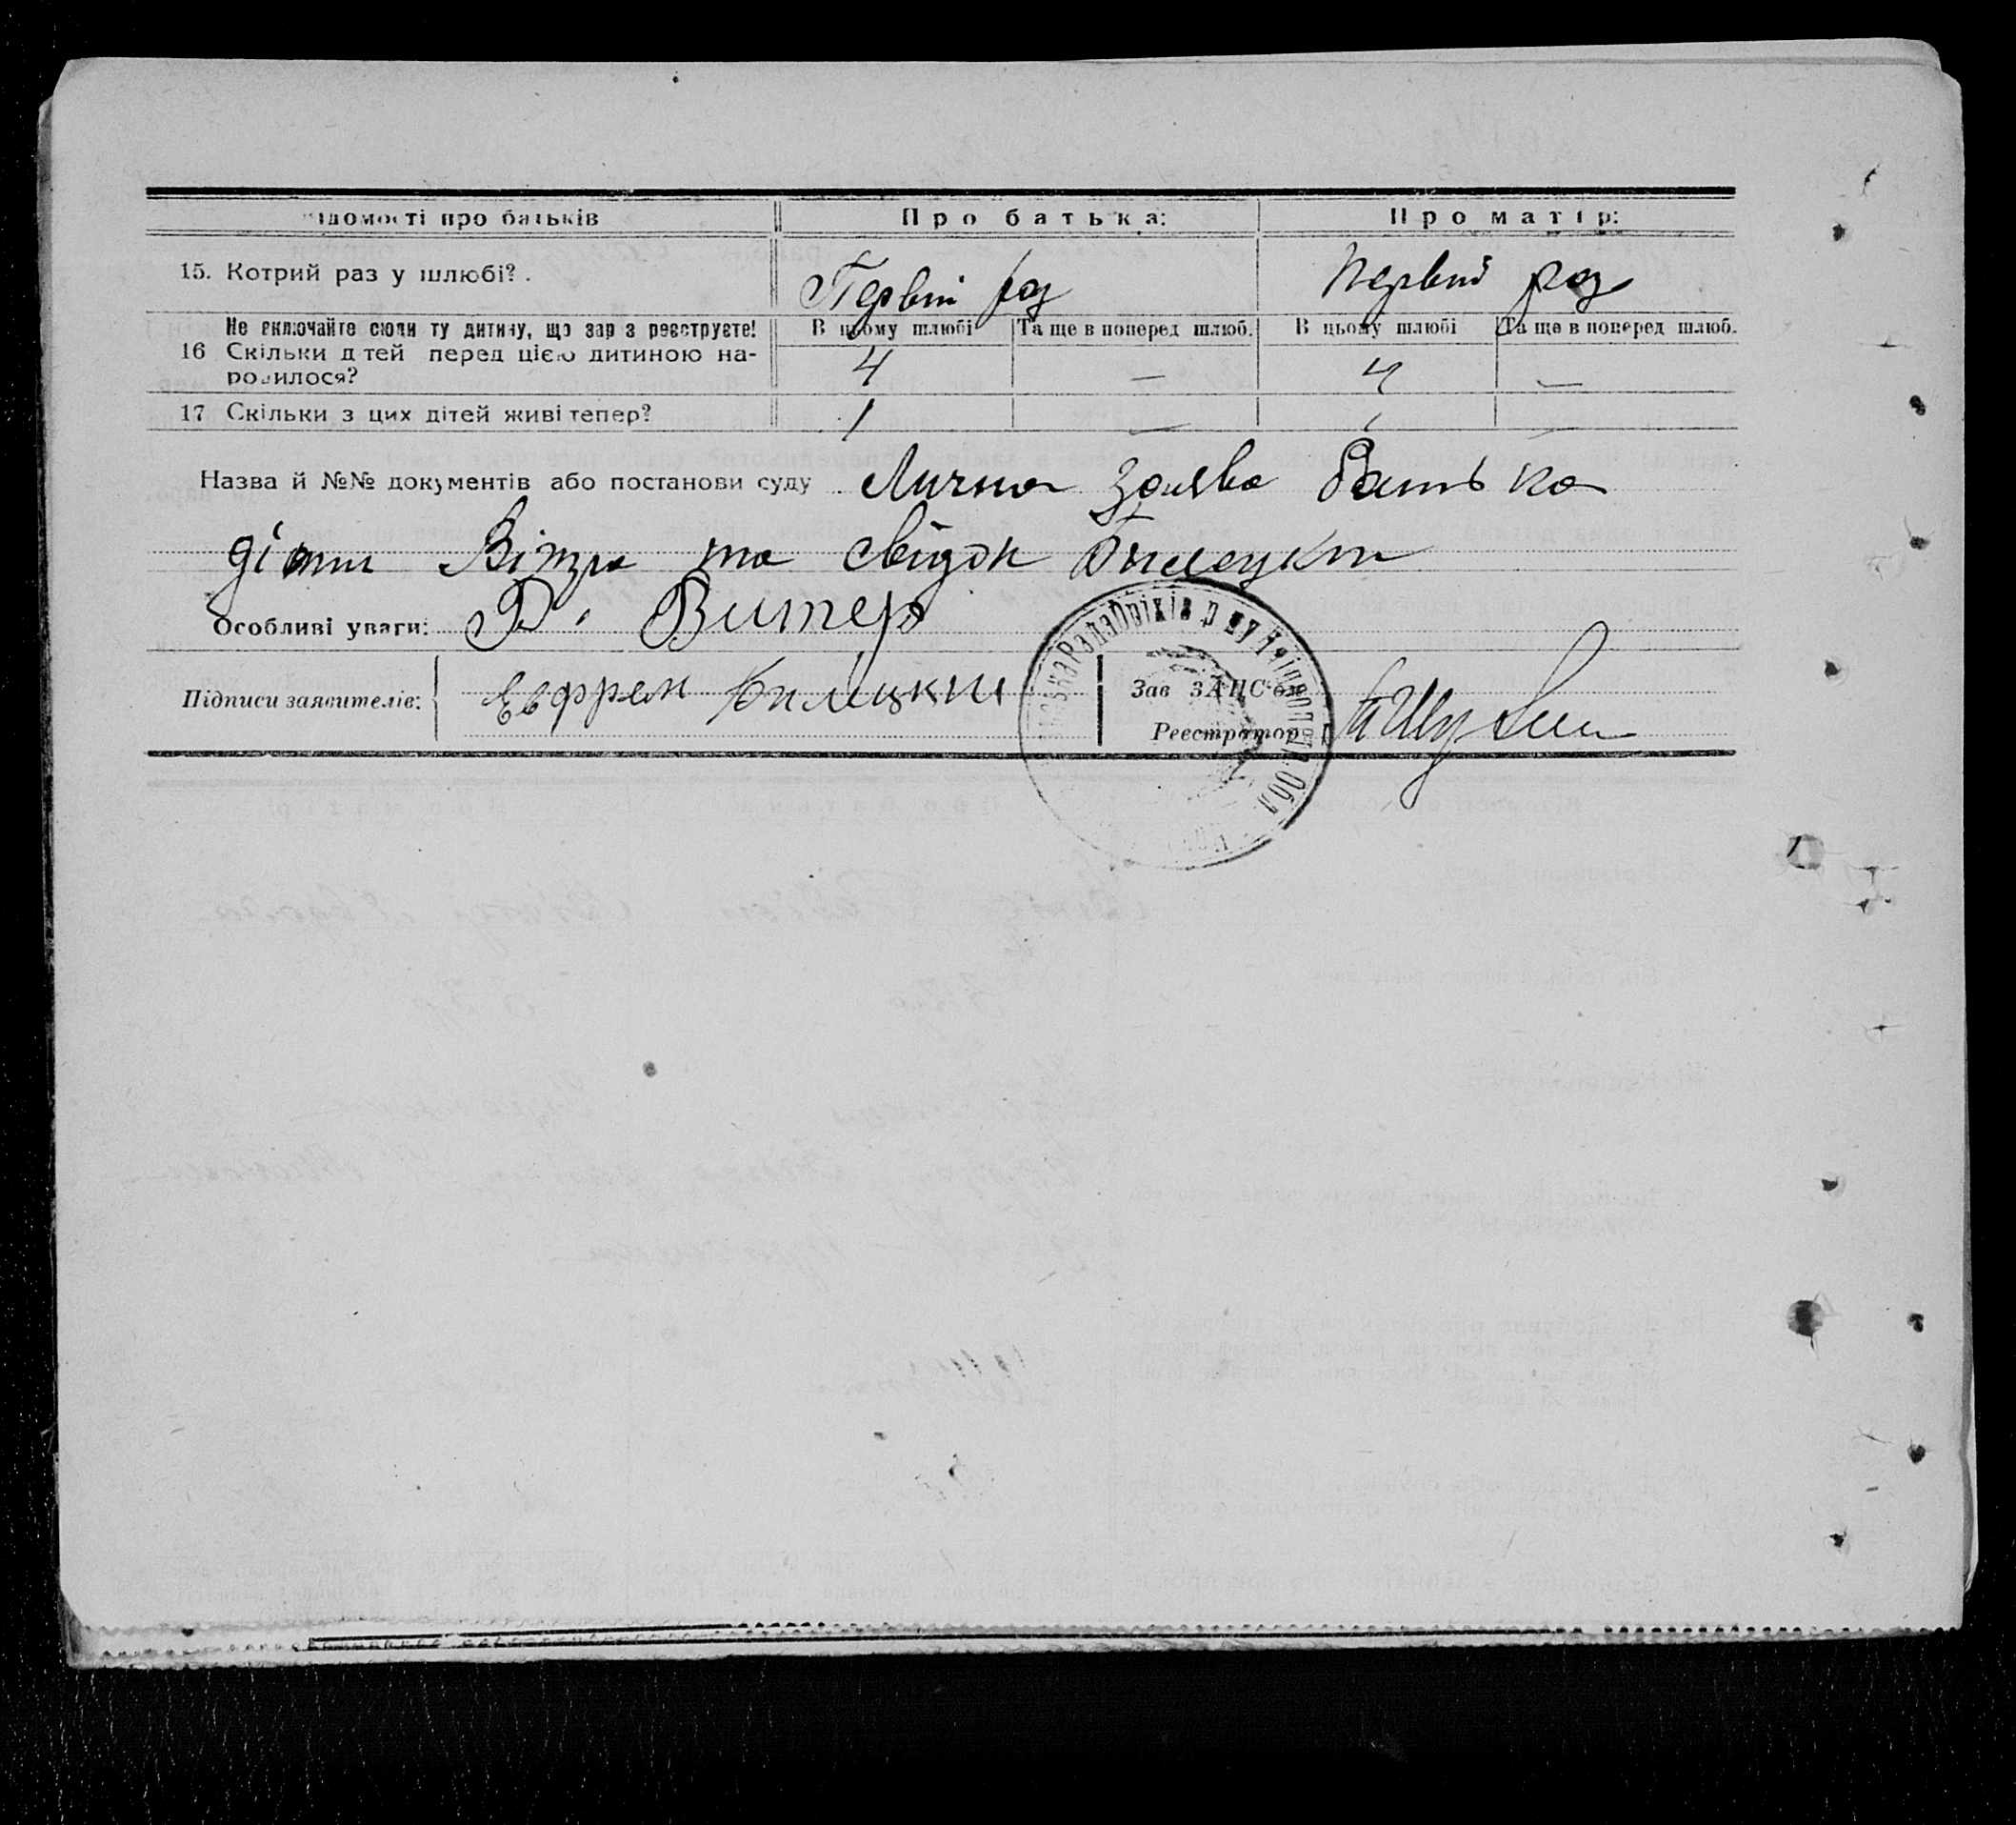 ідомості про батьків Про батька: Про матір:
15. Котрий раз у шлюбі? Первий раз Первий раз
Не включайте сюди ту дитину, що зараз реєструєте! В цьому шлюбі Та ще в поперед шлюб. В цьому шлюбі Та ще в поперед шлюб.
16 Скільки дітей перед цією дитиною на-
родилося? 4 — 4 —
17 Скільки з цих дітей живі тепер? 1 — 1 —
Назва й №№ документів або постанови суду Лична заява батька
та свідок
Особливі уваги: Витер
Підписи заявителів: Ефрем Билецкий Зав ЗАГС'ом
Реєстратор